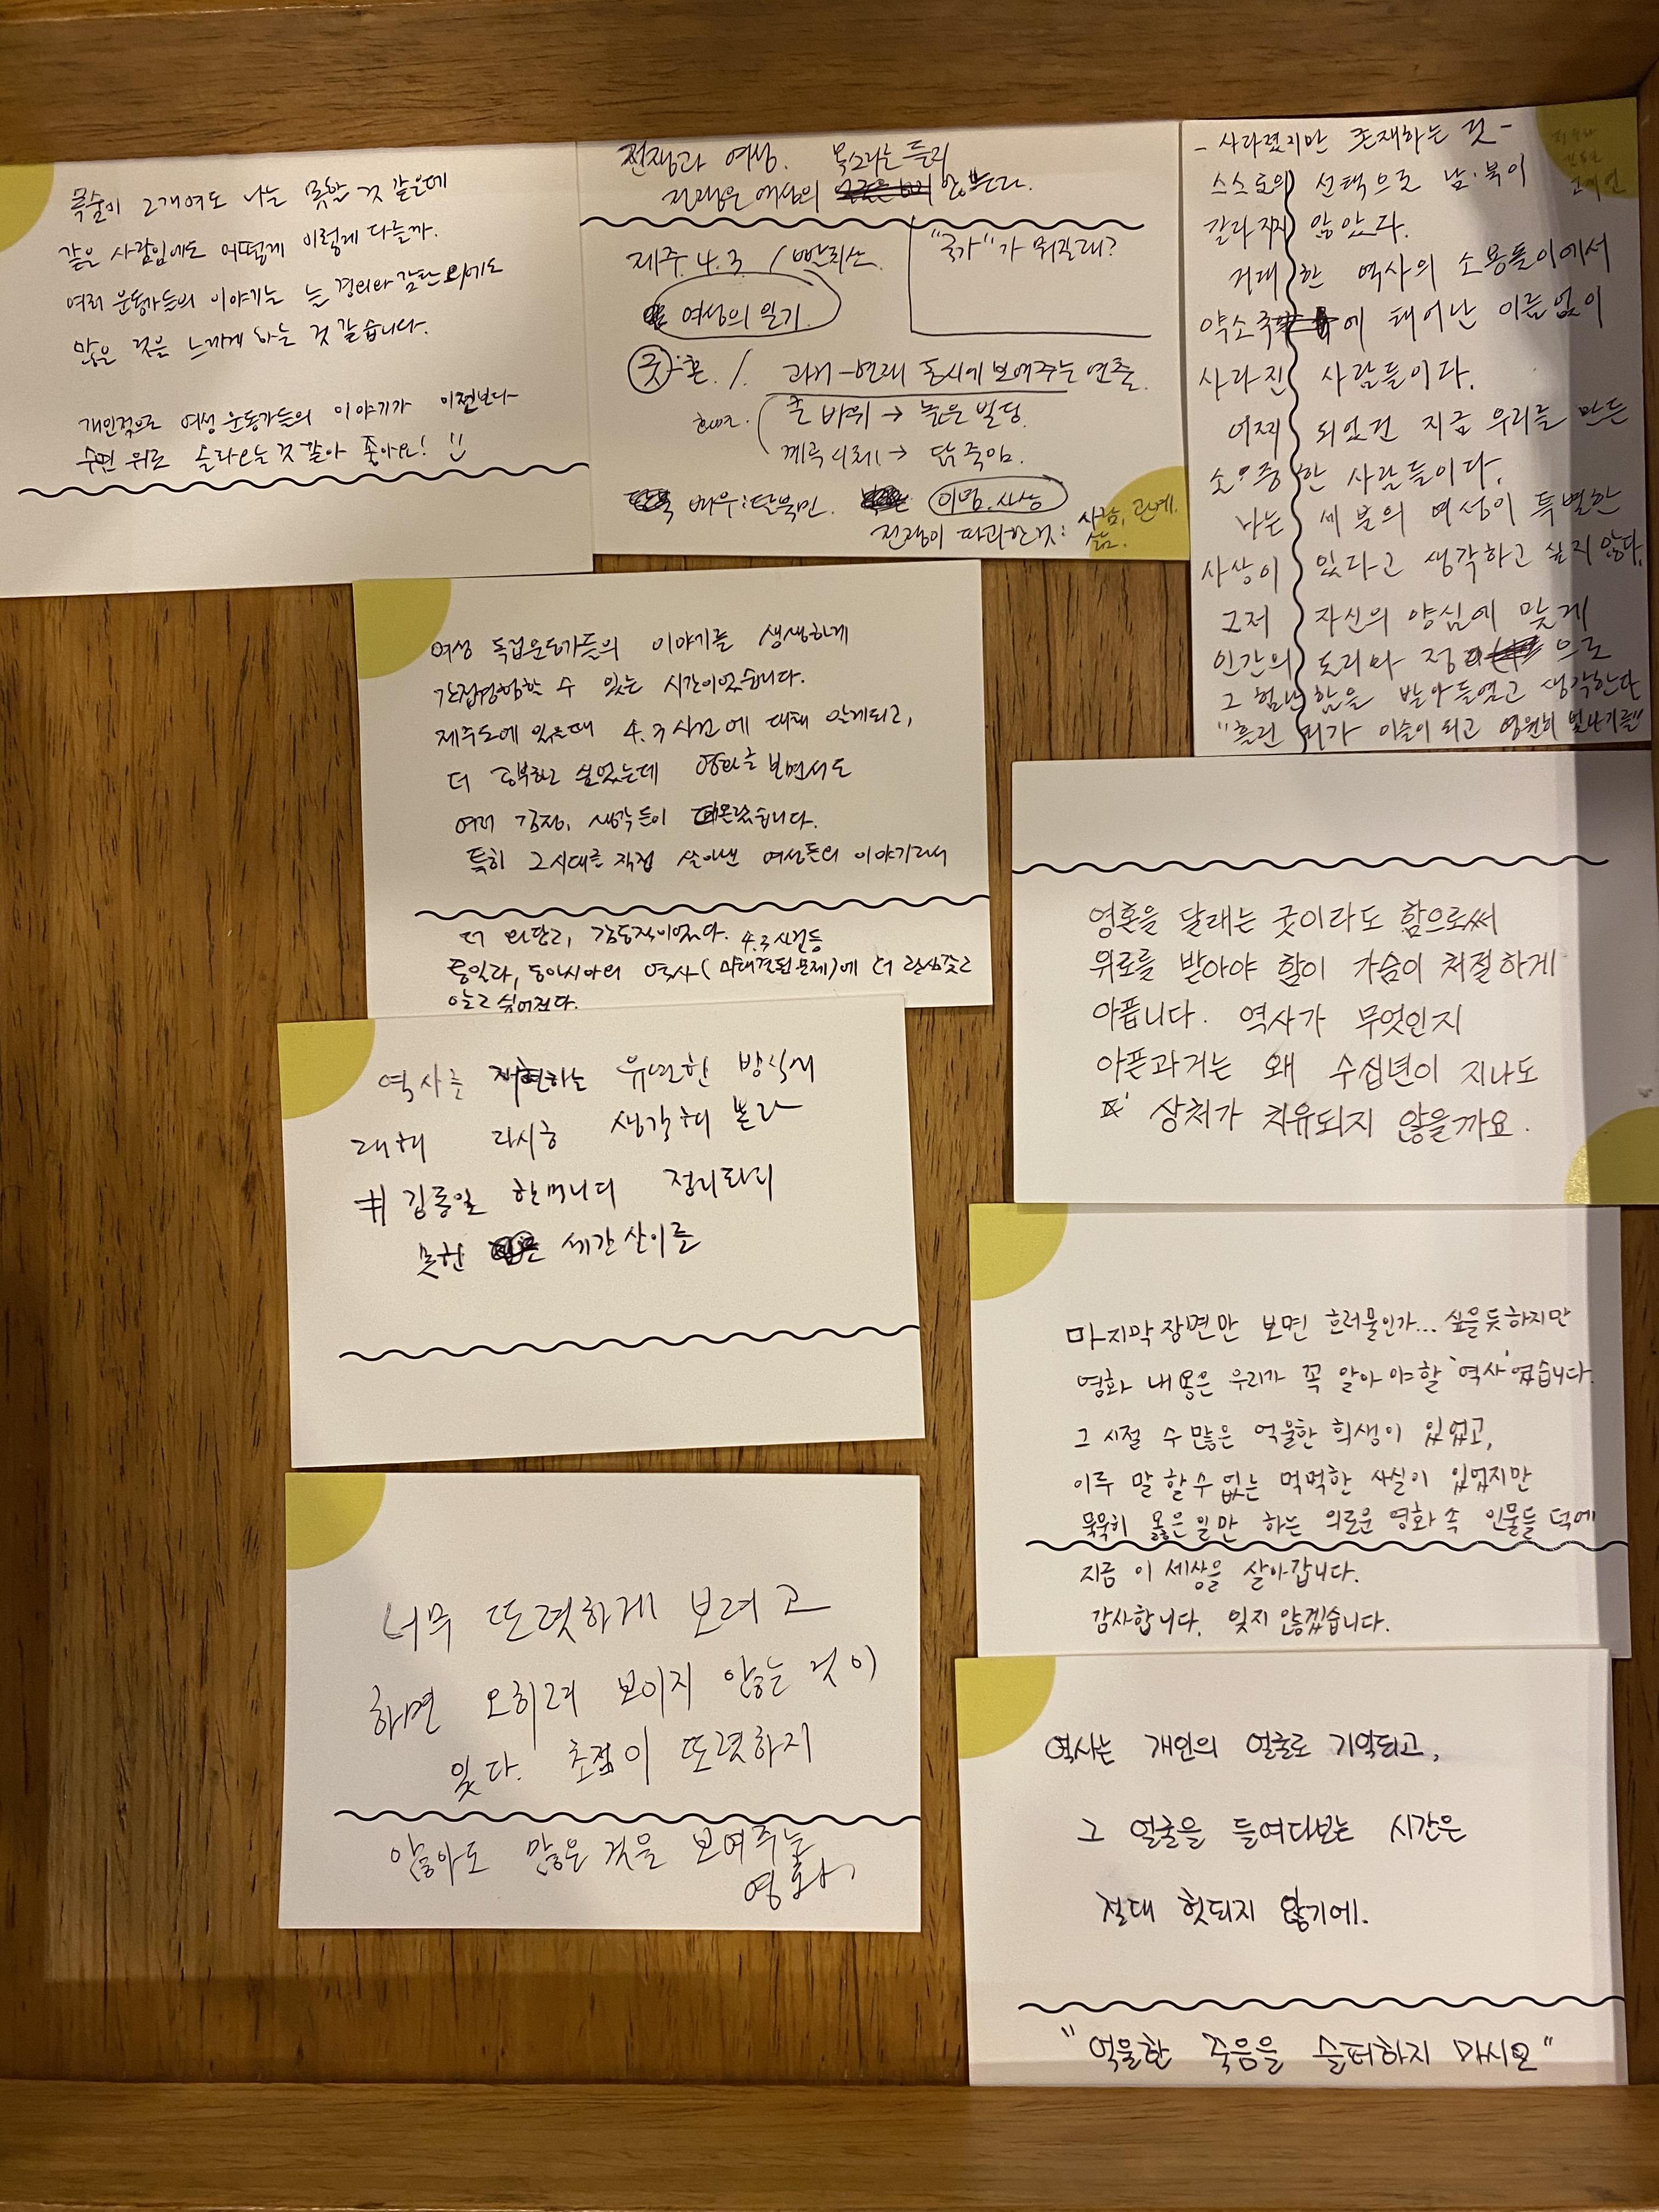 목숨이 2개여도 나는 못할 것 같은데
같은 사람임에도 어떻게 이렇게 다를까.
여러 운동가들의 이야기는 늘 경외와 감탄 외에도
많은 것을 느끼게 하는 것 같습니다.
개인적으로 여성 운동가들의 이야기가 이전보다
수면 위로 올라오는 것 같아 좋아요! :)
전쟁과 여성. 목소리는 들리
전쟁은 여성의 않는다.
제주. 4.3. / 빨치산.
"국가"가 뭐길래?
여성의 일기.
굿:혼. / 과거-현재 동시에 보여주는 연출.
큰 바위 → 높은 빌딩.
계곡 시체 → 닭 죽임.
배우:탈북민.
전쟁이 파괴한것: 사람, 관계.
삶.
- 사라졌지만 존재하는 것 -
스스로의 선택으로 남·북이
갈라지지 않았다.
거대한 역사의 소용돌이에서
약소국에 태어난 이름없이
사라진 사람들이다.
어찌 되었건 지금 우리를 만든
소중한 사람들이다.
나는 세 분의 여성이 특별한
사상이 있다고 생각하고 싶지 않다.
그저 자신의 양심에 맞게
인간의 도리와 정 으로
그 험난함을 받아들였고 생각한다
"흘린 피가 이슬이 되고 영원히 빛나기를"
여성 독립운동가들의 이야기를 생생하게
간접경험할 수 있는 시간이었습니다.
제주도에 있을때 4.3 사건에 대해 알게되고,
더 공부하고 싶었는데 영화를 보면서도
여러 감정, 생각들이 떠올랐습니다.
특히 그시대를 직접 살아낸 여성들의 이야기라서
더 와닿고, 감동적이었다. 4.3 사건등
통일과, 동아시아의 역사(미해결된 문제)에 더 관심갖고
알고 싶어졌다.
영혼을 달래는 굿이라도 함으로써
위로를 받아야 함이 가슴이 처절하게
아픕니다. 역사가 무엇인지
아픈과거는 왜 수십년이 지나도
상처가 치유되지 않을까요.
역사를 재현하는 유일한 방식에
대해 다시금 생각해 본다
# 김동일 할머니의 정리되지
못한 세간살이들
마지막 장면만 보면 호러물인가... 싶을듯하지만
영화 내용은 우리가 꼭 알아야할 '역사'였습니다.
그 시절 수 많은 억울한 희생이 있었고,
이루 말 할 수 없는 먹먹한 사실이 있었지만
묵묵히 옳은 일만 하는 의로운 영화 속 인물들 덕에
지금 이 세상을 살아갑니다.
감사합니다. 잊지 않겠습니다.
너무 또렷하게 보려고
하면 오히려 보이지 않는 것이
있다. 초점이 또렷하지
않아도 많은 것을 보여주는
영화.
역사는 개인의 얼굴로 기억되고,
그 얼굴을 들여다보는 시간은
절대 헛되지 않기에.
"억울한 죽음을 슬퍼하지 마시오"